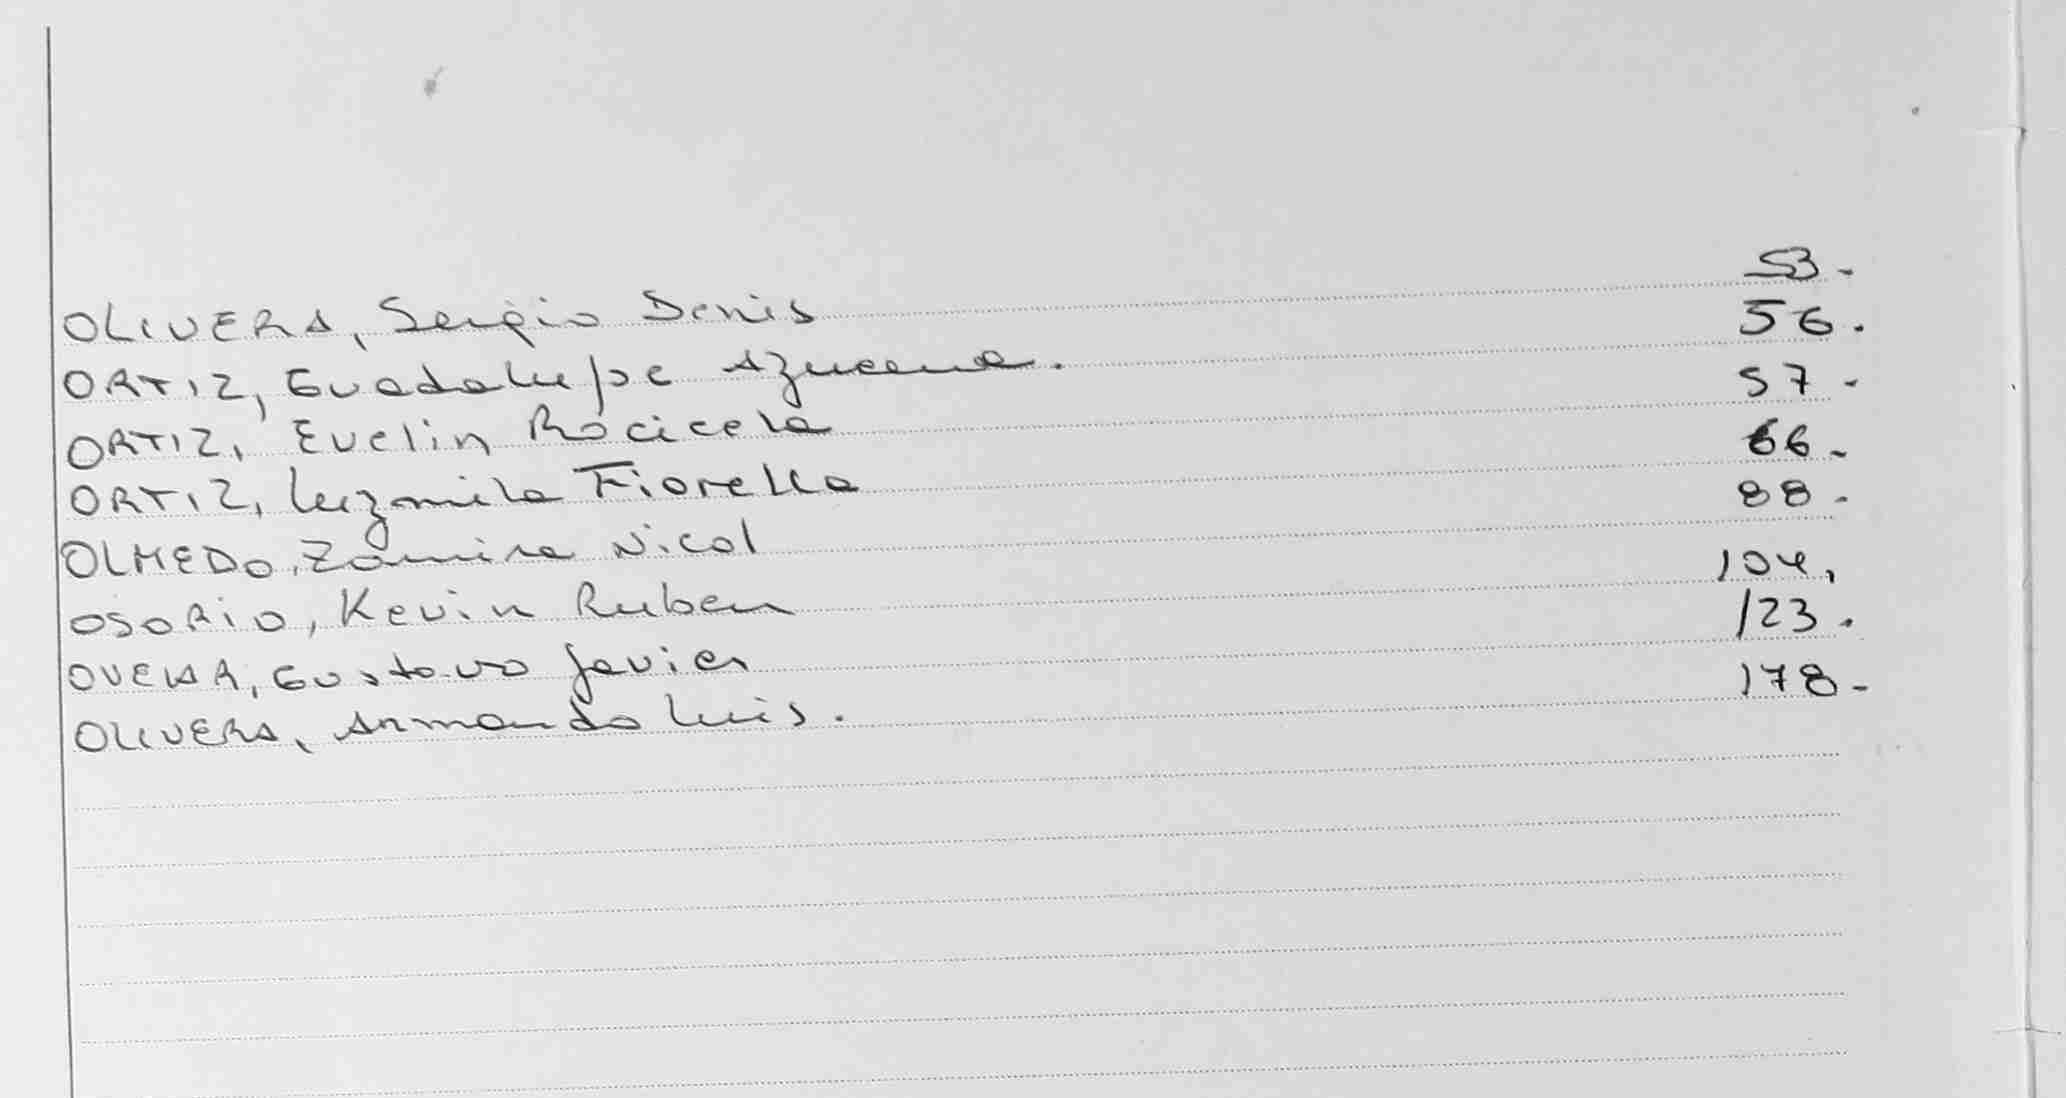 OLIVERA, Sergio Denis 53.
ORTIZ, Guadalupe Azucena. 56.
ORTIZ, Evelin Rocicela 57.
ORTIZ, Luzmila Fiorella 66.
OLMEDO, Zamira Nicol 88.
OSORIO, Kevin Ruben 104.
OVELAR, Gustavo Javier 123.
OLIVERA, Armando Luis. 178.